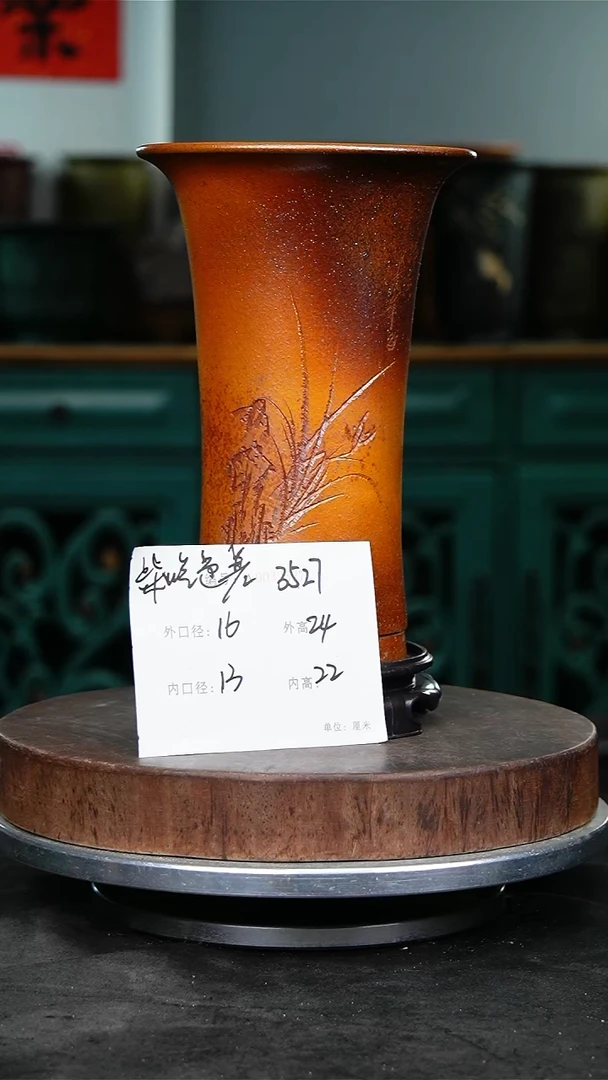 柴烧 3527
外口径: 16 外高: 24
内口径: 13 内高: 22
单位: 厘米